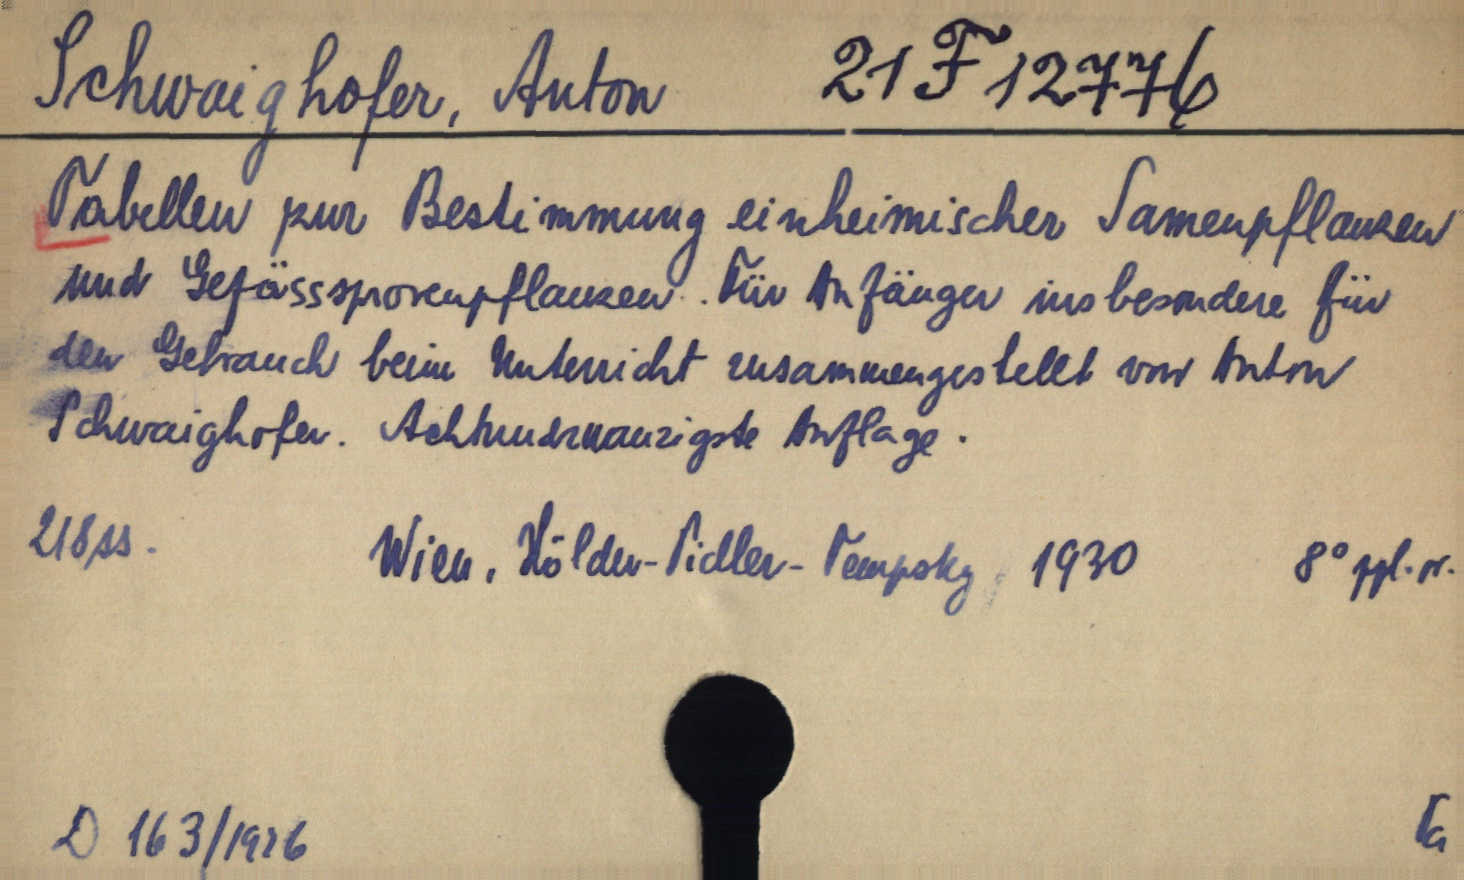 Schwaighofer, Anton 21 F 12776
Tabellen zur Bestimmung einheimischer Samenpflanzen
und Gefässsporenpflanzen. Für Anfänger insbesondere für
den Gebrauch beim Unterricht zusammengestellt von Anton
Schwaighofer. Achtundzwanzigste Auflage.
218 ss. Wien, Hölder-Pichler-Tempsky 1930 8° ppl. pr.
D 163/1926